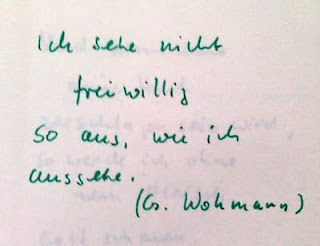 Ich sehe nicht
freiwillig
so aus, wie ich
aussehe.
(G. Wohmann)